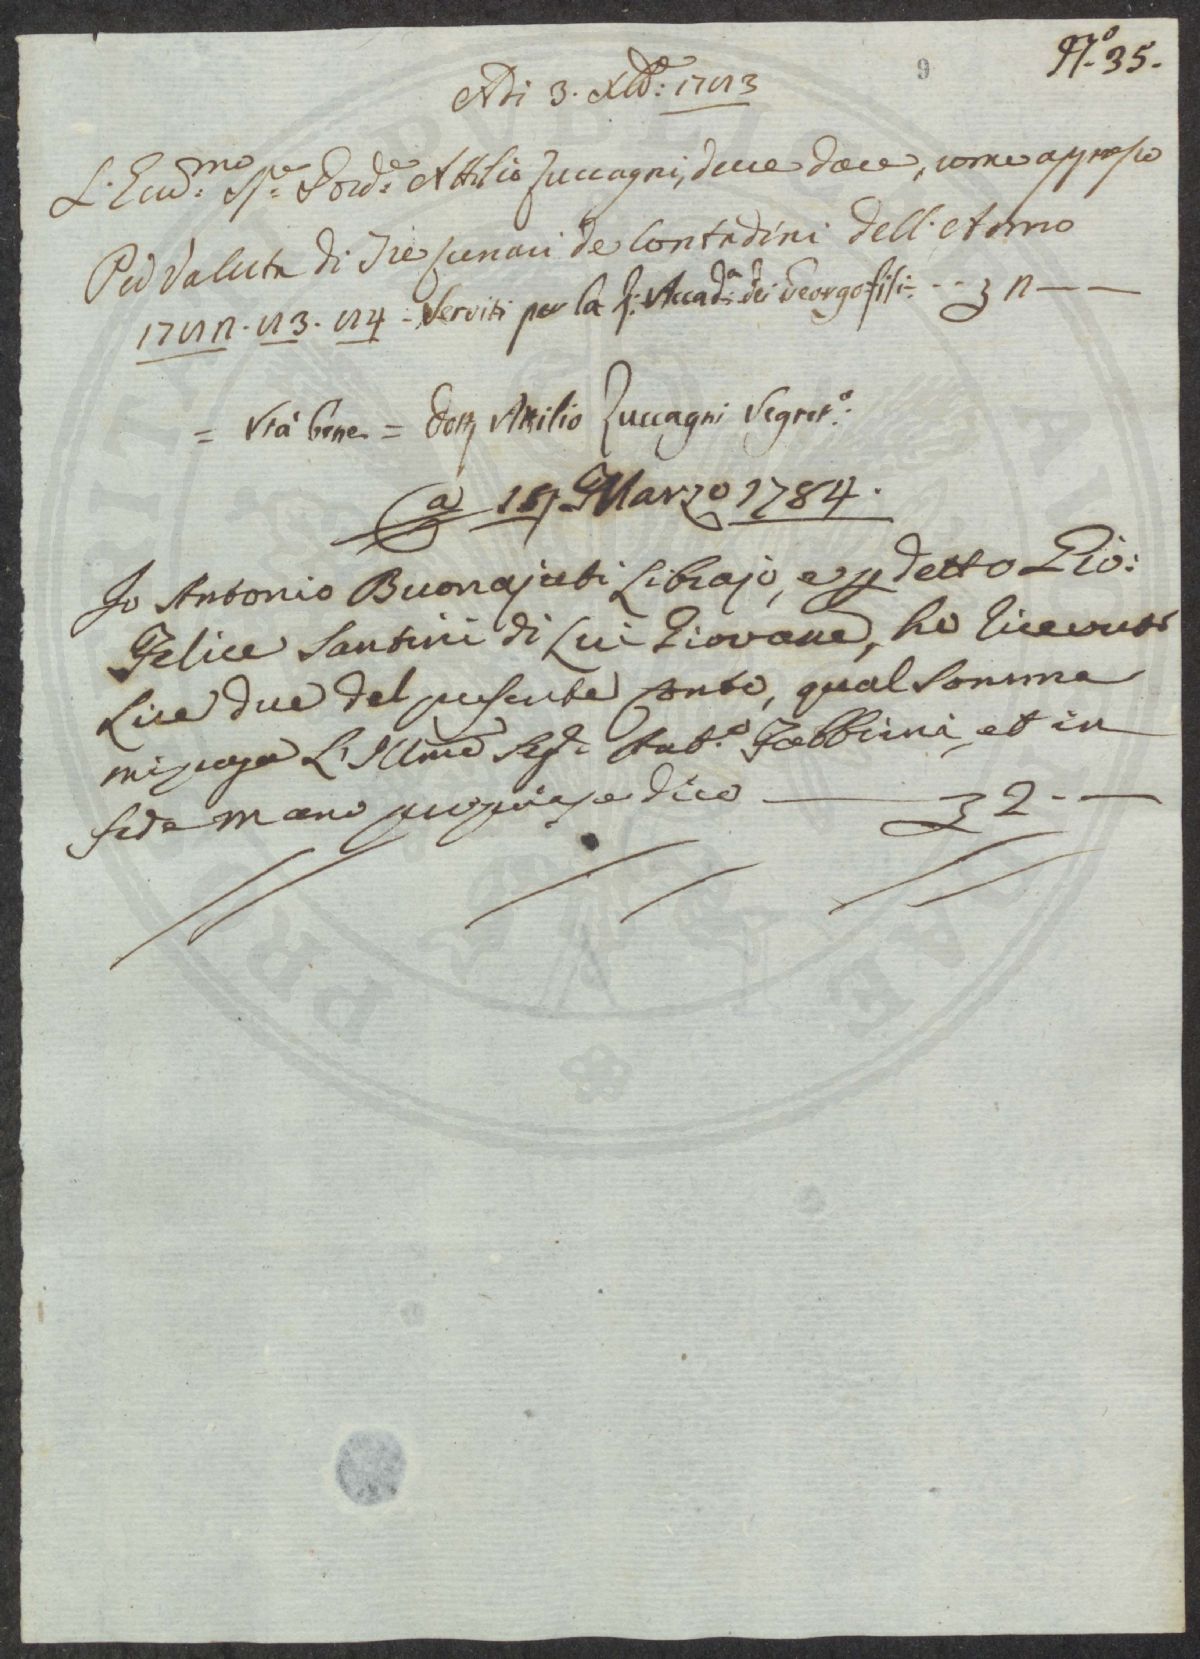 N.o 35.
9
Adi 3. Xbre: 1783
L'Ecc.mo Sig.re Dott.e Attilio Zuccagni, deve dare, come appresso
Per Valuta di Tre Lunari de Contadini dell'Anno
1782. 83. 84 = Serviti per la R. Accad.a dei Georgofili = - - £ 2 — —
= Stà bene = Dott Attilio Zuccagni Segret.o
a 18 Marzo 1784.
Io Antonio Buonajuti Librajo, e p detto Gio:
Felice Santini di Lui Giovane, ho ricevuto
Lire due del presente conto, qual somma
mi paga L'Illmo Sig.r Ant.o Fabbrini, et in
fede mano propria dico — £ 2 - —